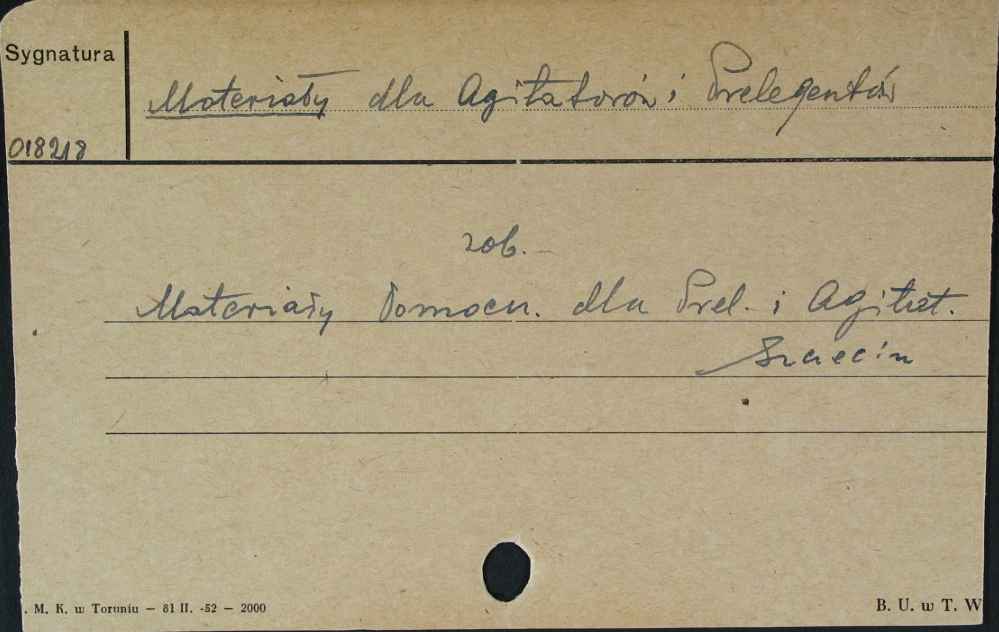 Sygnatura
Materiały dla Agitatorów i Prelegentów
018218
zob. -
Materiały Pomocn. dla Prel. i Agitat.
Szczecin
. M. K. w Toruniu — 81 II. -52 — 2000
B. U. w T. W